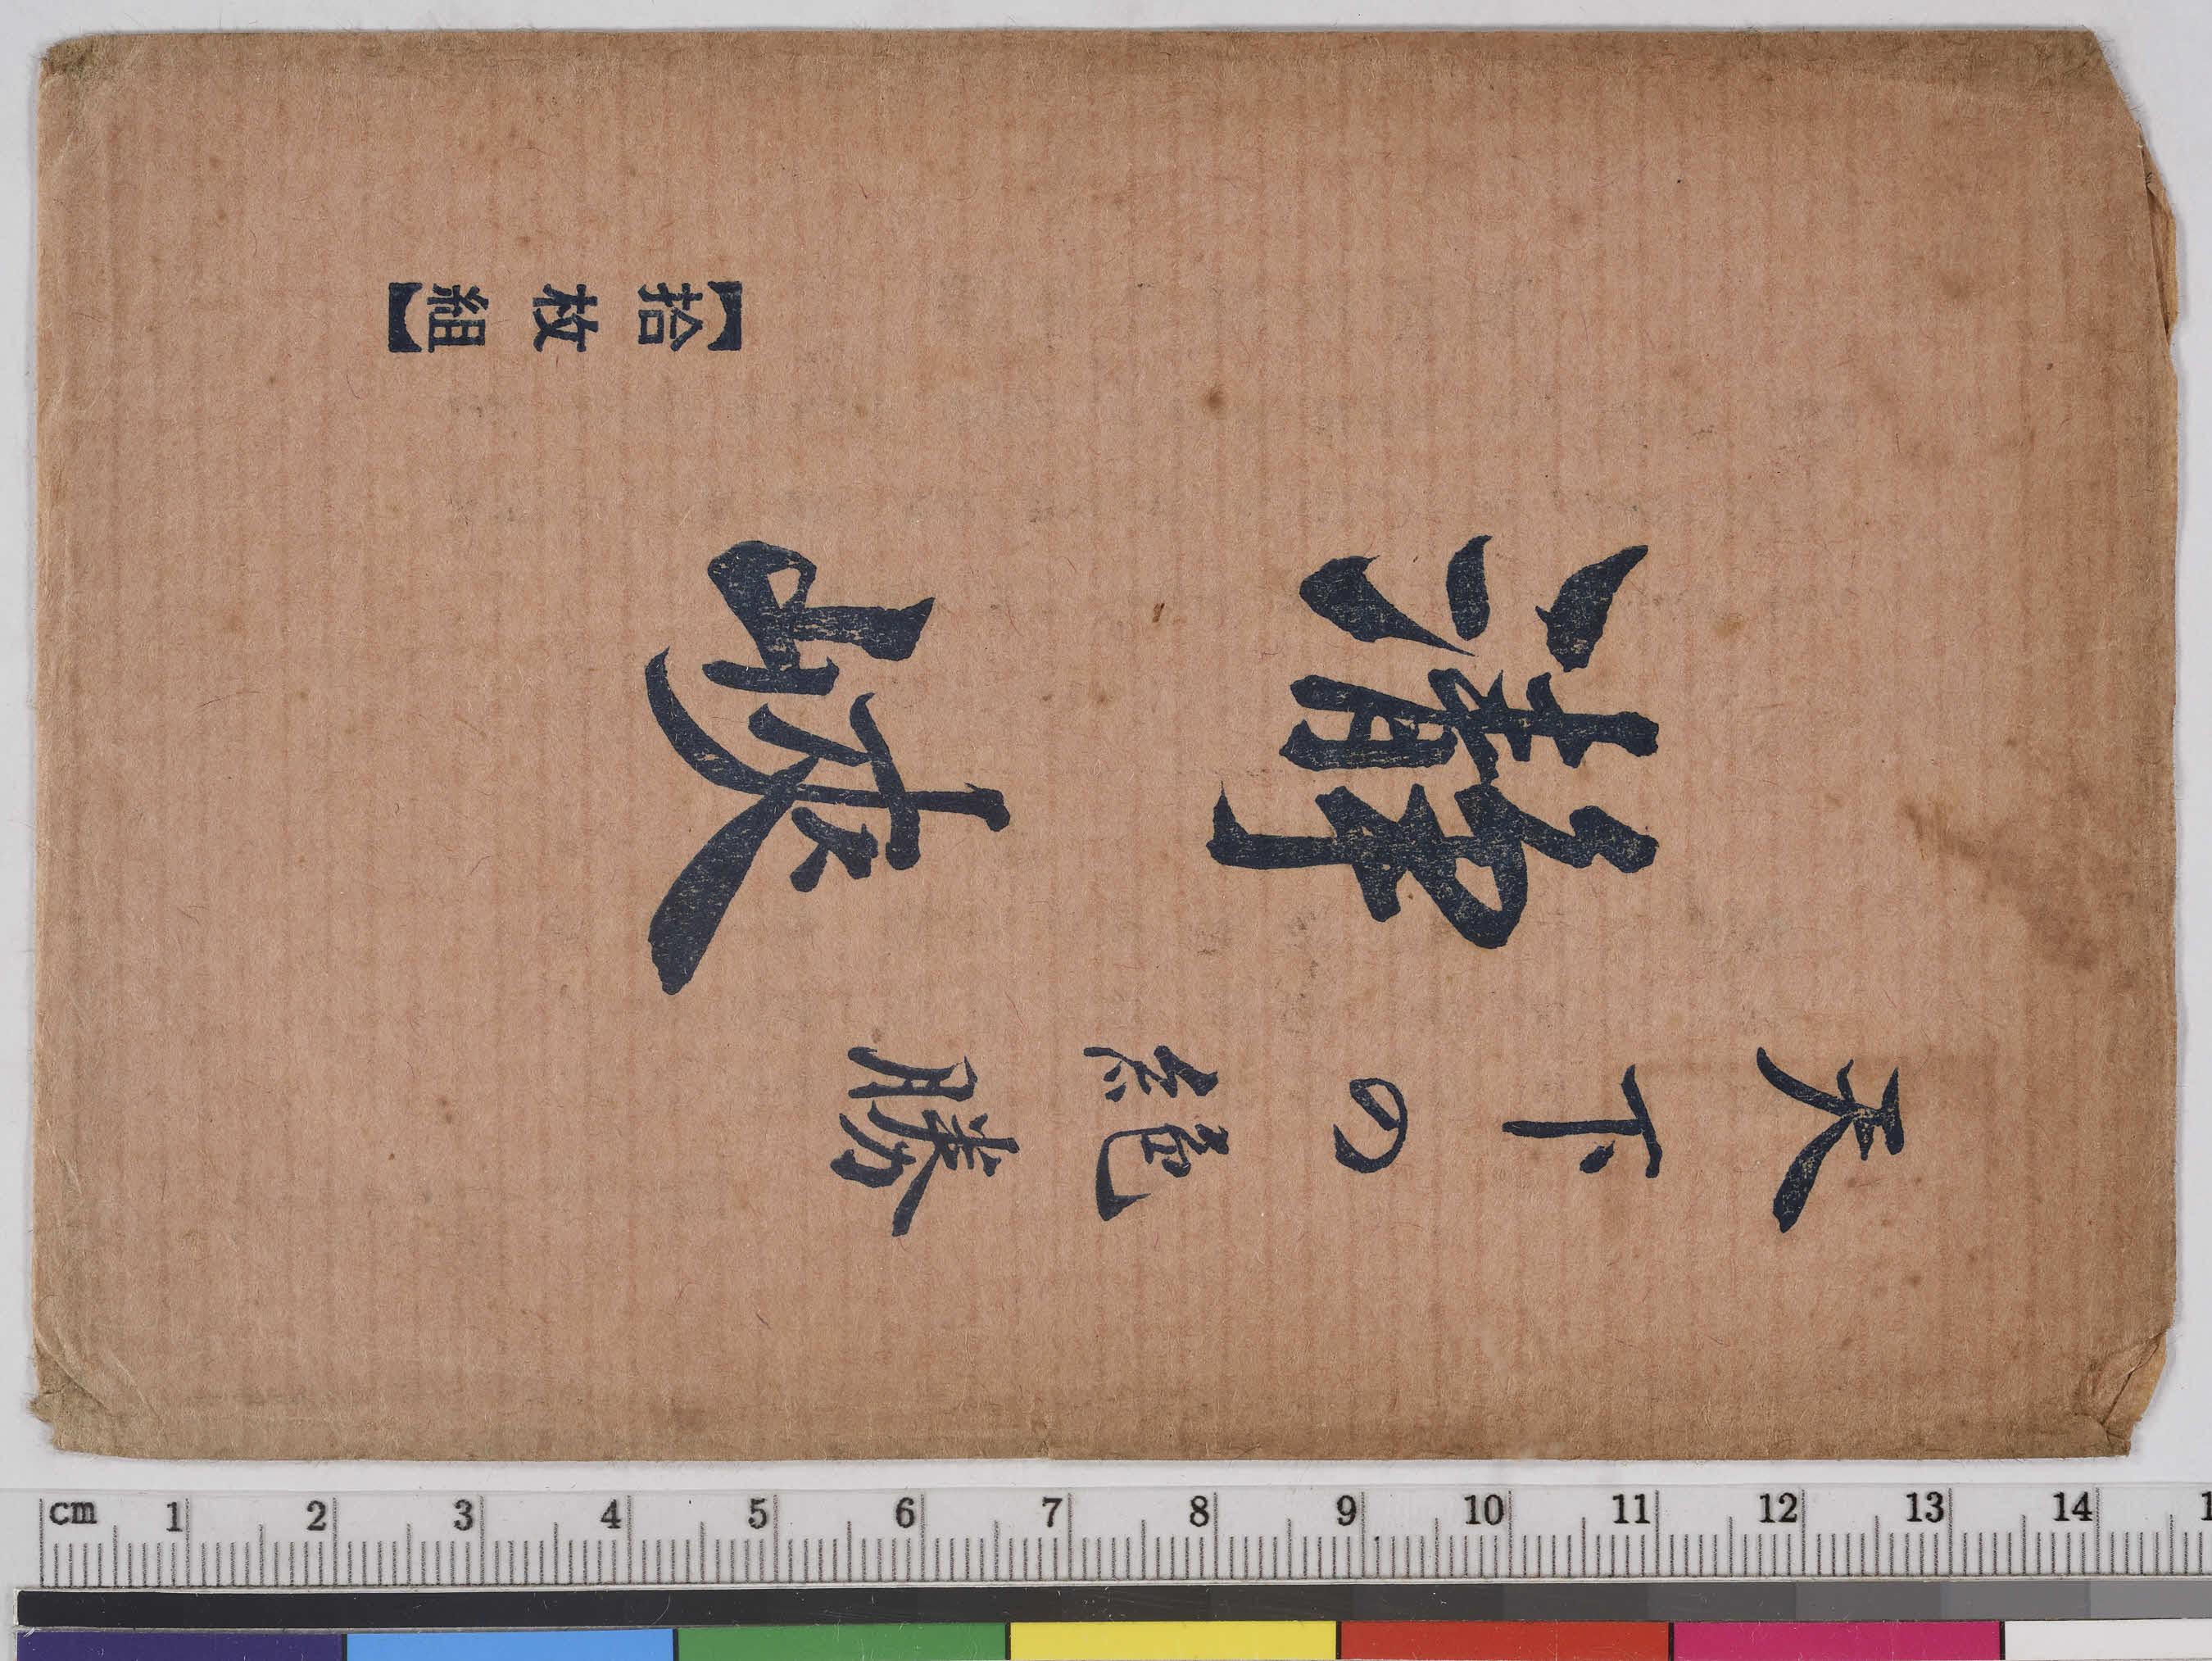 天下の絶勝
瀞峽
【拾枚組】
cm 1 2 3 4 5 6 7 8 9 10 11 12 13 14